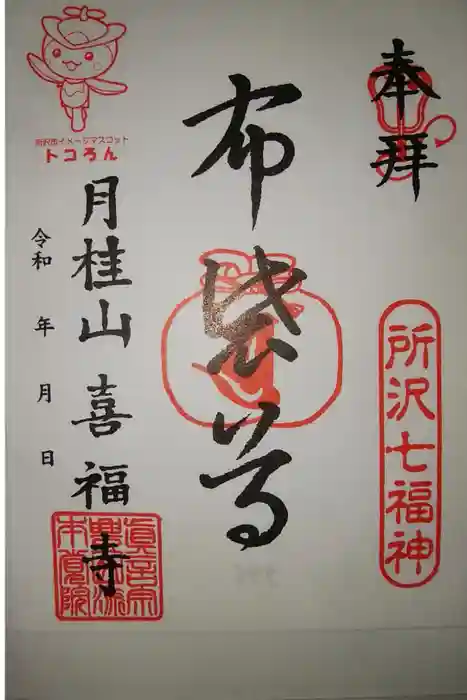 奉拝
所沢七福神
布袋尊
所沢市イメージマスコット
トコろん
月桂山 喜福寺
眞言宗
令和 年 月 日